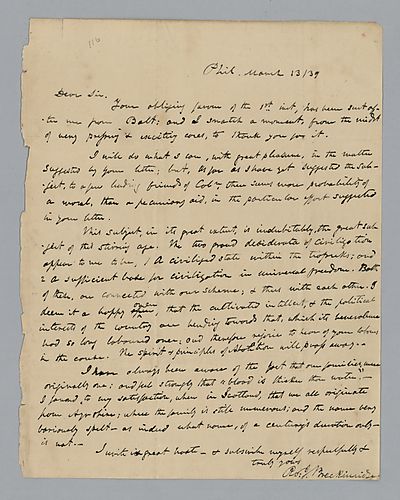 116
Phil. March 13/39
Dear Sir.
Your obliging favour of the 1st inst, has been sent af-
ter me from Balt: and I snatch a moment, from the midst
of many pressing & exciting cares, to thank you for it.
I will do what I can, with great pleasure, in the matter
suggested by your letter; but, as far as I have yet suggested the sub-
ject, to a few leading friends of Coln. there seems more probability of
a moral, than a pecuniary aid, in the particular effort suggested
in your letter.
This subject, in its great extent, is indubitably, the great sub-
ject of this stirring age. The two grand desiderata of civilization
appear to me to be, 1 A civilized state within the tropicks; and
2 a sufficient base for civilization in universal freedom. Both
of these, are connected with our scheme; & thus with each other. I
deem it a happy omen, that the cultivated intellect, & the political
interests of the country are bending towards that, which its benevolence
had so long laboured over; and therefore rejoice to hear of your labours
in the cause. The spirit & principles of Abolition will pass away.
I have always been aware of the fact that our families were
originally one; and feel strongly that "blood is thicker than water."
I found, to my satisfaction, when in Scotland, that we all originate
from Ayrshire; where the family is still numerous; and the name very
variously spelt — as indeed what name, of a century's duration only —
is not. —
I write in great haste — & subscribe myself respectfully &
truly yours
Ro. J. Breckinridge